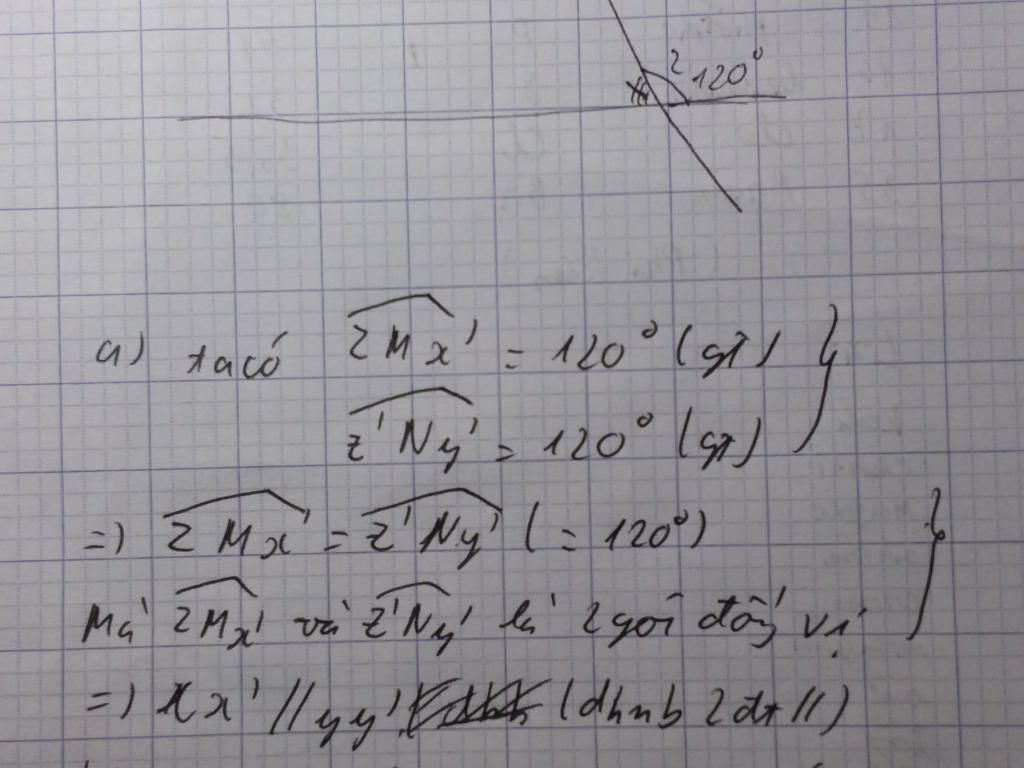 2 120°
a) ta có zMx' = 120° (gt)
z'Ny' = 120° (gt)
=) zMx' = z'Ny' (= 120°)
Mà zMx' và z'Ny' là 2 góc đồng vị
=) xx' // yy' (dhnb 2đt //)